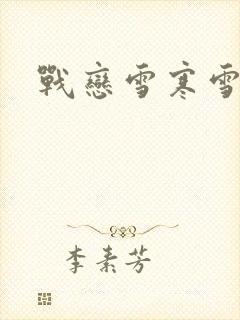 戰戀雪寒雪
李素芳